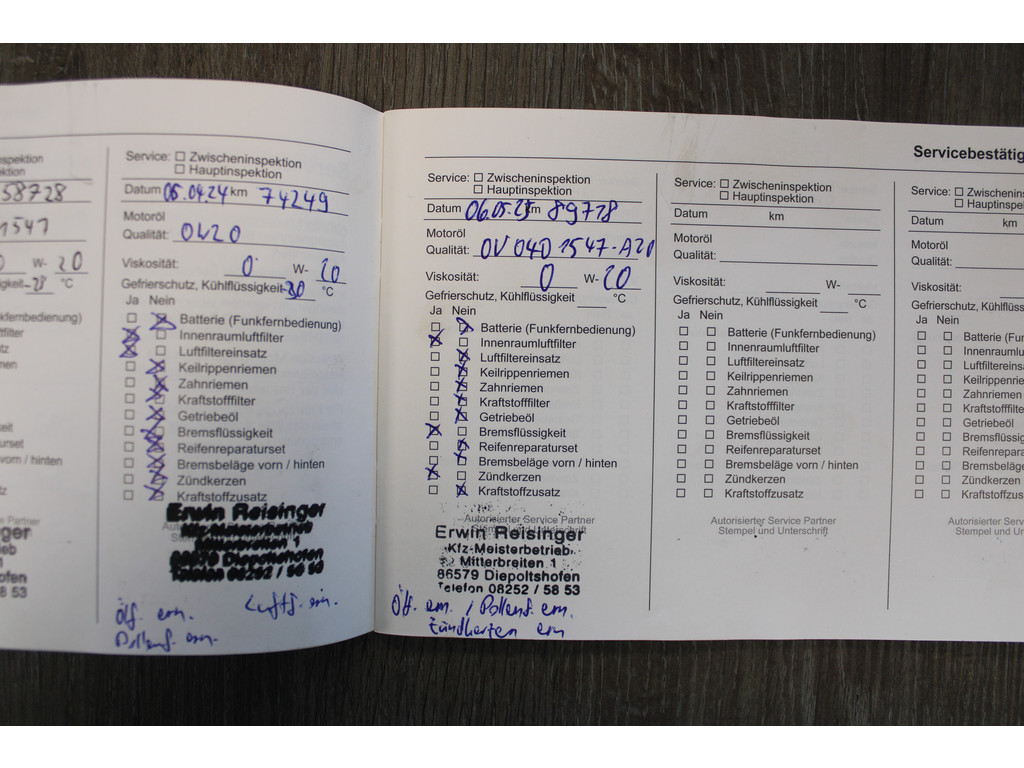 58728
1547
W- 20
-28 °C
vorn / hinten
Service: Zwischeninspektion
Hauptinspektion
Datum 05.04.24 km 74249
Motoröl
Qualität: 0W20
Viskosität: 0 W- 20
Gefrierschutz, Kühlflüssigkeit -30 °C
Ja Nein
Batterie (Funkfernbedienung)
Innenraumluftfilter
Luftfiltereinsatz
Keilrippenriemen
Zahnriemen
Kraftstofffilter
Getriebeöl
Bremsflüssigkeit
Reifenreparaturset
Bremsbeläge vorn / hinten
Zündkerzen
Kraftstoffzusatz
Erwin Reisinger
Kfz-Meisterbetrieb
86579 Diepoltshofen
Telefon 08252 / 58 53
Ölf. ern. Luftf. ern.
Pollenf. ern.
Servicebestätig
Service: Zwischeninspektion
Hauptinspektion
Datum 06.05.25 km 89718
Motoröl
Qualität: OV 040 1547-A20
Viskosität: 0 W- 20
Gefrierschutz, Kühlflüssigkeit °C
Ja Nein
Batterie (Funkfernbedienung)
Innenraumluftfilter
Luftfiltereinsatz
Keilrippenriemen
Zahnriemen
Kraftstofffilter
Getriebeöl
Bremsflüssigkeit
Reifenreparaturset
Bremsbeläge vorn / hinten
Zündkerzen
Kraftstoffzusatz
Autorisierter Service Partner
Stempel und Unterschrift
Erwin Reisinger
Kfz-Meisterbetrieb
Mitterbreiten 1
86579 Diepoltshofen
Telefon 08252 / 58 53
Ölf. ern. / Pollenf. ern.
Zündkerzen ern
Service: Zwischeninspektion
Hauptinspektion
Datum km
Motoröl
Qualität:
Viskosität: W-
Gefrierschutz, Kühlflüssigkeit °C
Ja Nein
Batterie (Funkfernbedienung)
Innenraumluftfilter
Luftfiltereinsatz
Keilrippenriemen
Zahnriemen
Kraftstofffilter
Getriebeöl
Bremsflüssigkeit
Reifenreparaturset
Bremsbeläge vorn / hinten
Zündkerzen
Kraftstoffzusatz
Autorisierter Service Partner
Stempel und Unterschrift
Service: Zwischenins
Hauptinspe
Datum km
Motoröl
Qualität:
Viskosität:
Gefrierschutz, Kühlflüssi
Ja Nein
Batterie (Fun
Innenraumlu
Luftfiltereins
Keilrippenrie
Zahnriemen
Kraftstofffilte
Getriebeöl
Bremsflüssig
Reifenrepara
Bremsbeläge
Zündkerzen
Kraftstoffzus
Autorisierter Serv
Stempel und Un